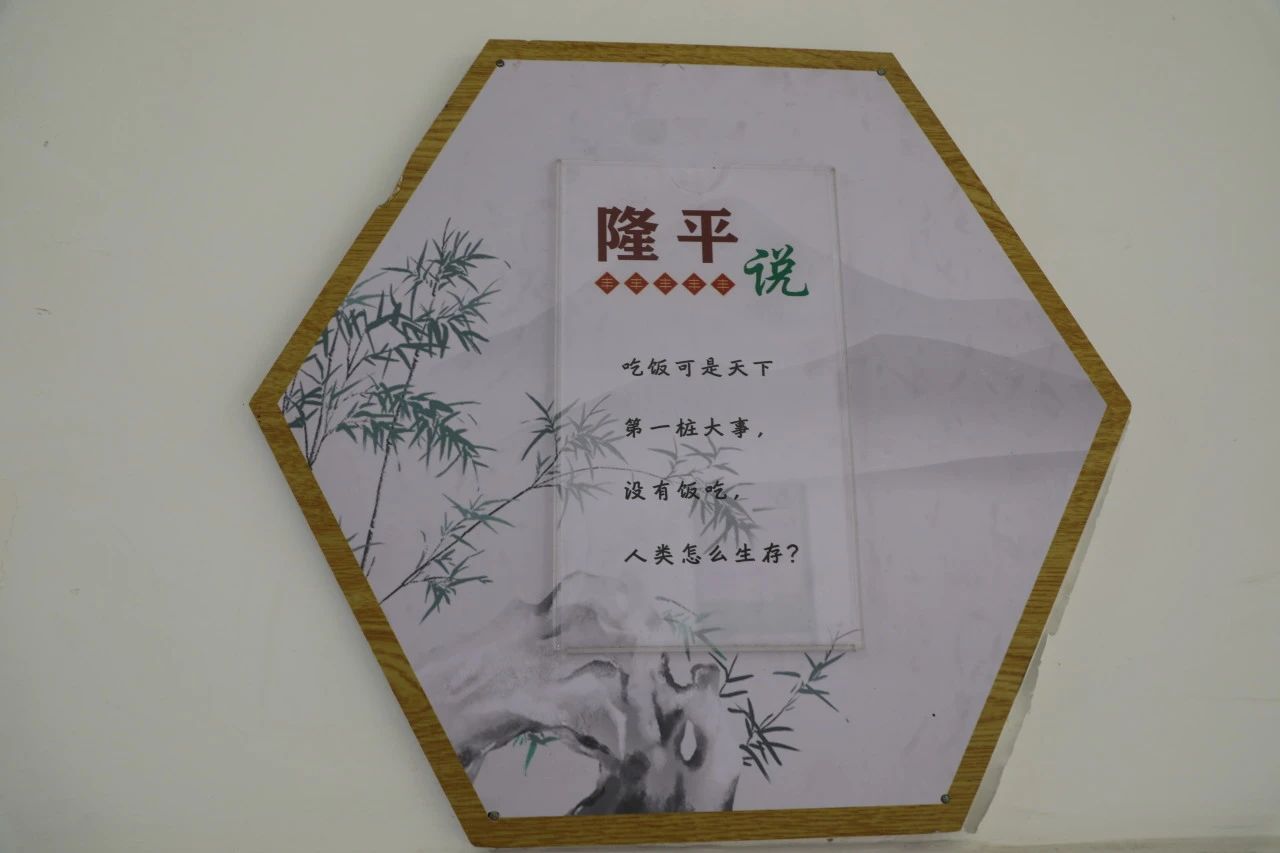 隆平
丰丰丰丰丰
说
吃饭可是天下
第一桩大事，
没有饭吃，
人类怎么生存？